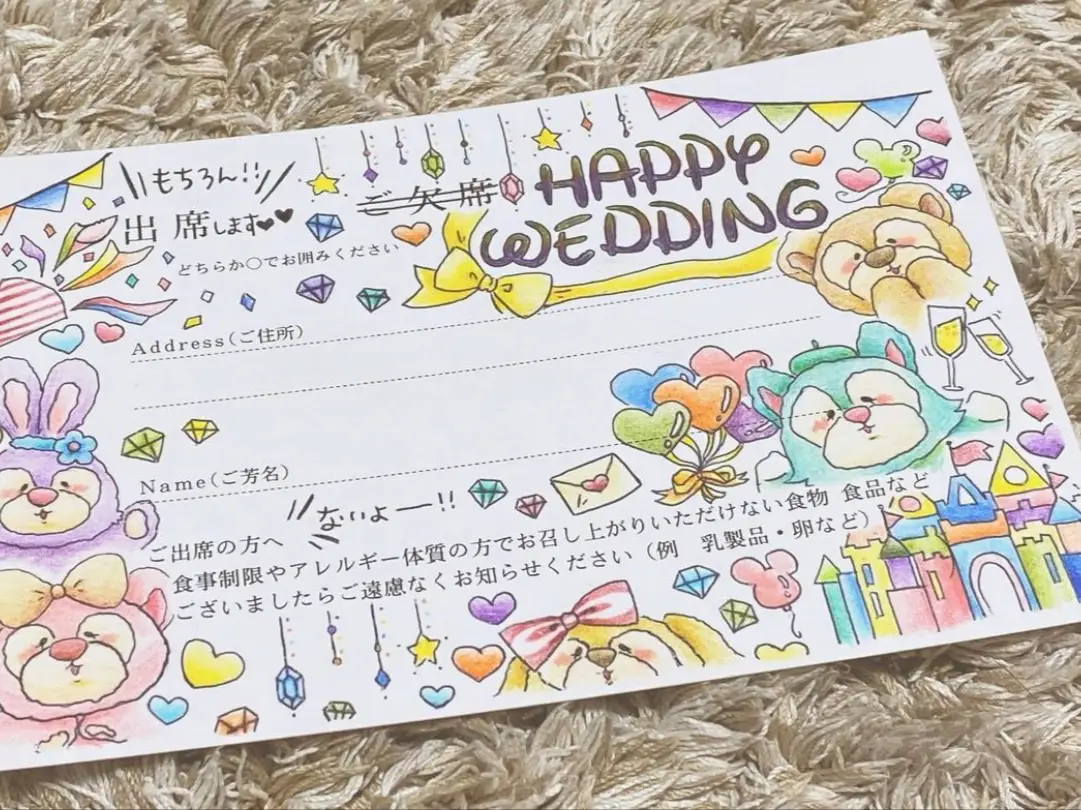 もちろん!!
出席します
ご欠席
HAPPY
WEDDING
どちらか○でお囲みください
Address(ご住所)
Name(ご芳名)
ないよー!!
ご出席の方へ
食事制限やアレルギー体質の方でお召し上がりいただけない食物 食品など
ございましたらご遠慮なくお知らせください(例 乳製品・卵など)